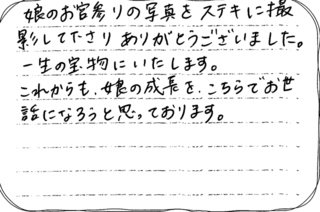 娘のお宮参りの写真をステキに撮
影して下さり ありがとうございました。
一生の宝物にいたします。
これからも、娘の成長を、こちらでお世
話になろうと思っております。